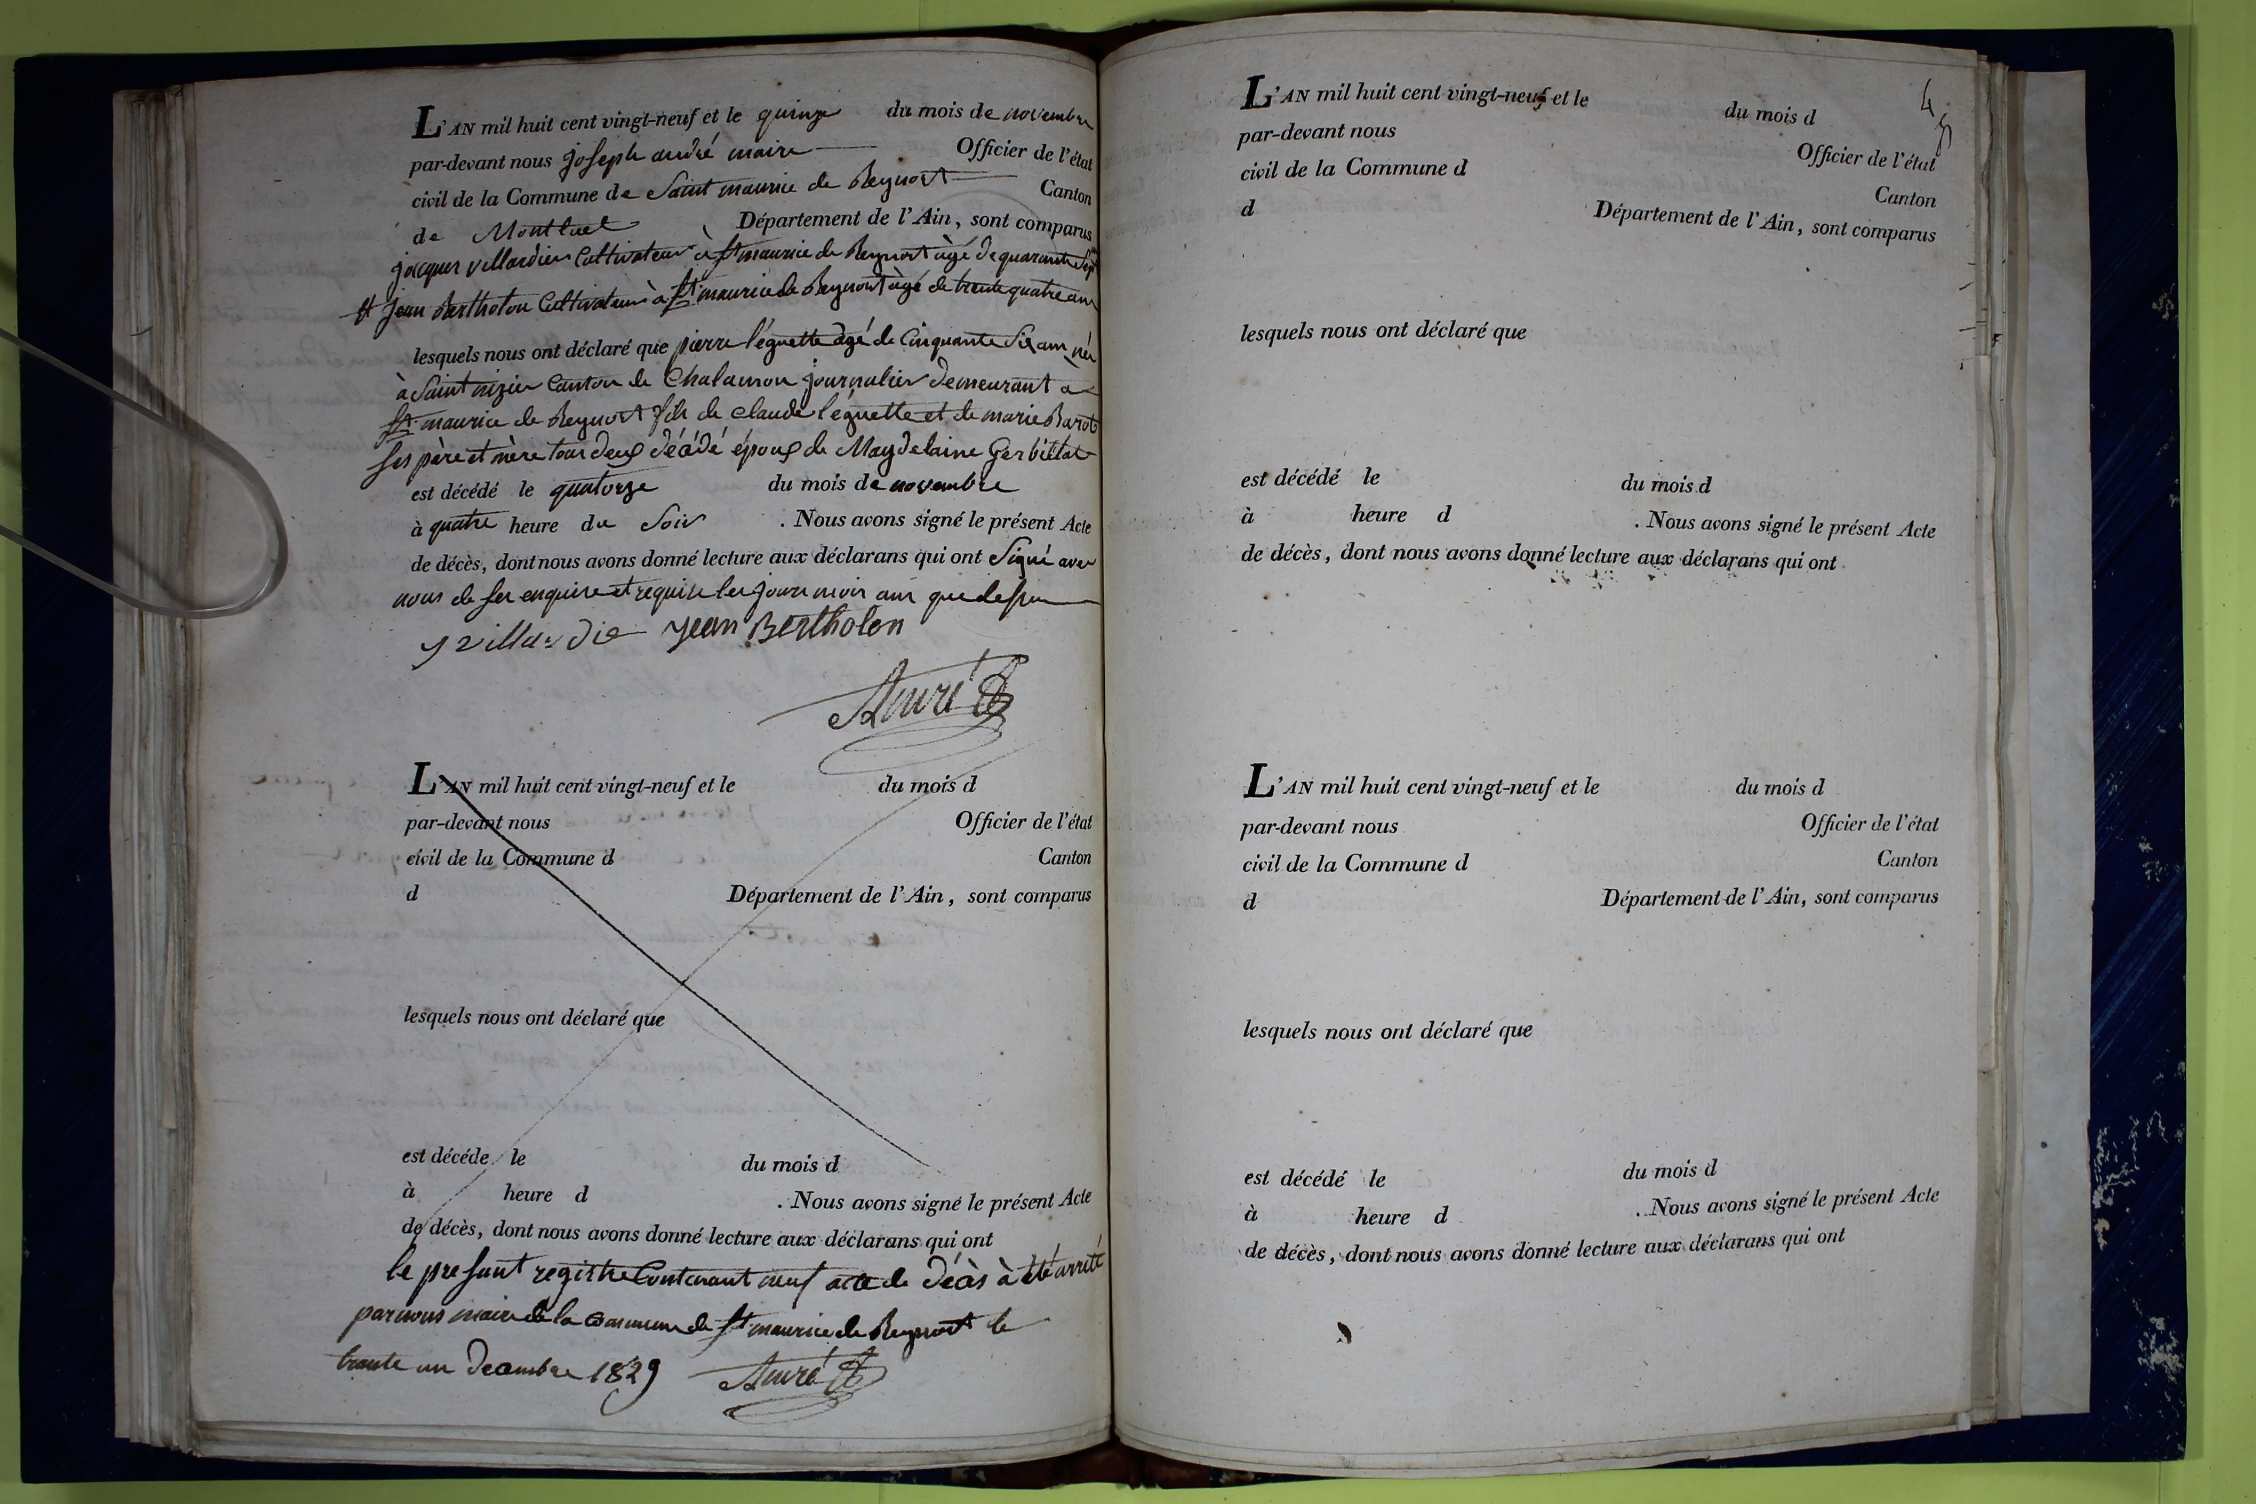 L'AN mil huit cent vingt-neuf et le quinze du mois de novembre
par-devant nous joseph andré maire Officier de l'état
civil de la Commune de Saint maurice de Beynost Canton
de Montluel Département de l'Ain, sont comparus
jacques villardier Cultivateur à St maurice de Beynost âgé de quarante sept
et jean Bertholon Cultivateur à St maurice de Beynost âgé de trente quatre ans
lesquels nous ont déclaré que pierre léguette âgé de Cinquante Six ans né
à Saint nizier Canton de Chalamon journalier demeurant à
St maurice de Beynost fils de claude léguette et de marie
ses père et mère tous deux décédé époux de Magdelaine Gerbillat
est décédé le quatorze du mois de novembre
à quatre heure du Soir . Nous avons signé le présent Acte
de décès, dont nous avons donné lecture aux déclarans qui ont Signé avec
nous de ser enquire et requis les jours mois ans que dessus
villardie jean Bertholon
André
L'AN mil huit cent vingt-neuf et le du mois d
par-devant nous Officier de l'état
civil de la Commune d Canton
d Département de l'Ain, sont comparus
lesquels nous ont déclaré que
est décédé le du mois d
à heure d . Nous avons signé le présent Acte
de décès, dont nous avons donné lecture aux déclarans qui ont
le present registre Contenant neuf acte de décès à été arrêté
par nous maire de la commune de St maurice de Beynost le
trente un decembre 1829 André
4
L'AN mil huit cent vingt-neuf et le du mois d
par-devant nous Officier de l'état
civil de la Commune d Canton
d Département de l'Ain, sont comparus
lesquels nous ont déclaré que
est décédé le du mois d
à heure d . Nous avons signé le présent Acte
de décès, dont nous avons donné lecture aux déclarans qui ont
L'AN mil huit cent vingt-neuf et le du mois d
par-devant nous Officier de l'état
civil de la Commune d Canton
d Département de l'Ain, sont comparus
lesquels nous ont déclaré que
est décédé le du mois d
à heure d . Nous avons signé le présent Acte
de décès, dont nous avons donné lecture aux déclarans qui ont